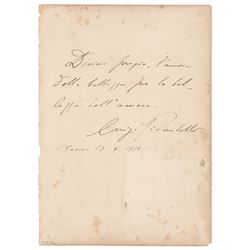 Divino pregio, l'amore
della bellezza per la bel-
lezza dell'amore.
Luigi Pirandello